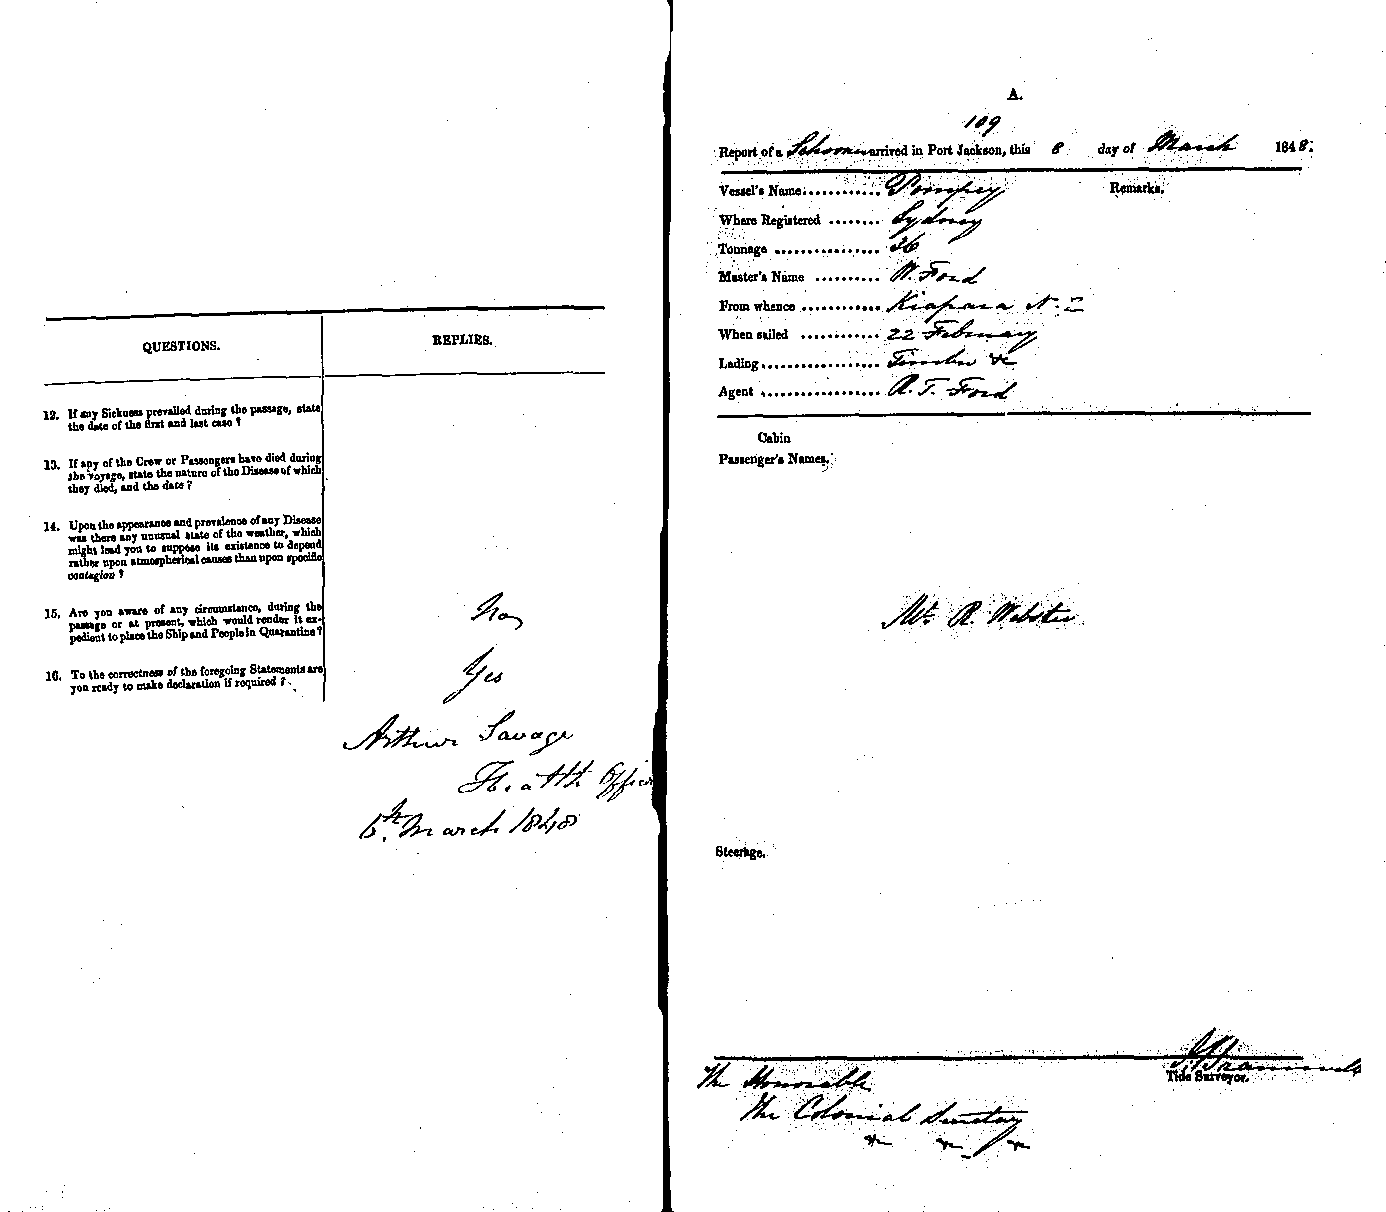 QUESTIONS.
REPLIES.
12. If any Sickness prevailed during the passage, state
the date of the first and last case ?
13. If any of the Crew or Passengers have died during
the voyage, state the nature of the Disease of which
they died, and the date ?
14. Upon the appearance and prevalence of any Disease
was there any unusual state of the weather, which
might lead you to suppose its existence to depend
rather upon atmospherical causes than upon specific
contagion ?
15. Are you aware of any circumstance, during the
passage or at present, which would render it ex-
pedient to place the Ship and People in Quarantine ?
No
16. To the correctness of the foregoing Statements are
you ready to make declaration if required ?
Yes
Arthur Savage
Health Officer
6th March 1848
A.
109
Report of a Schooner arrived in Port Jackson, this 8 day of March 1848.
Vessel's Name............ Pompey
Remarks.
Where Registered ........ Sydney
Tonnage ................ 36
Master's Name .......... W. Ford
From whence ............ Kiapara N. Z
When sailed ............ 22 February
Lading.................. Timber &c
Agent .................. R. T. Ford
Cabin
Passenger's Names.
Mr. R. Webster
Steerage.
Tide Surveyor.
The Honorable
The Colonial Secretary
&c &c &c